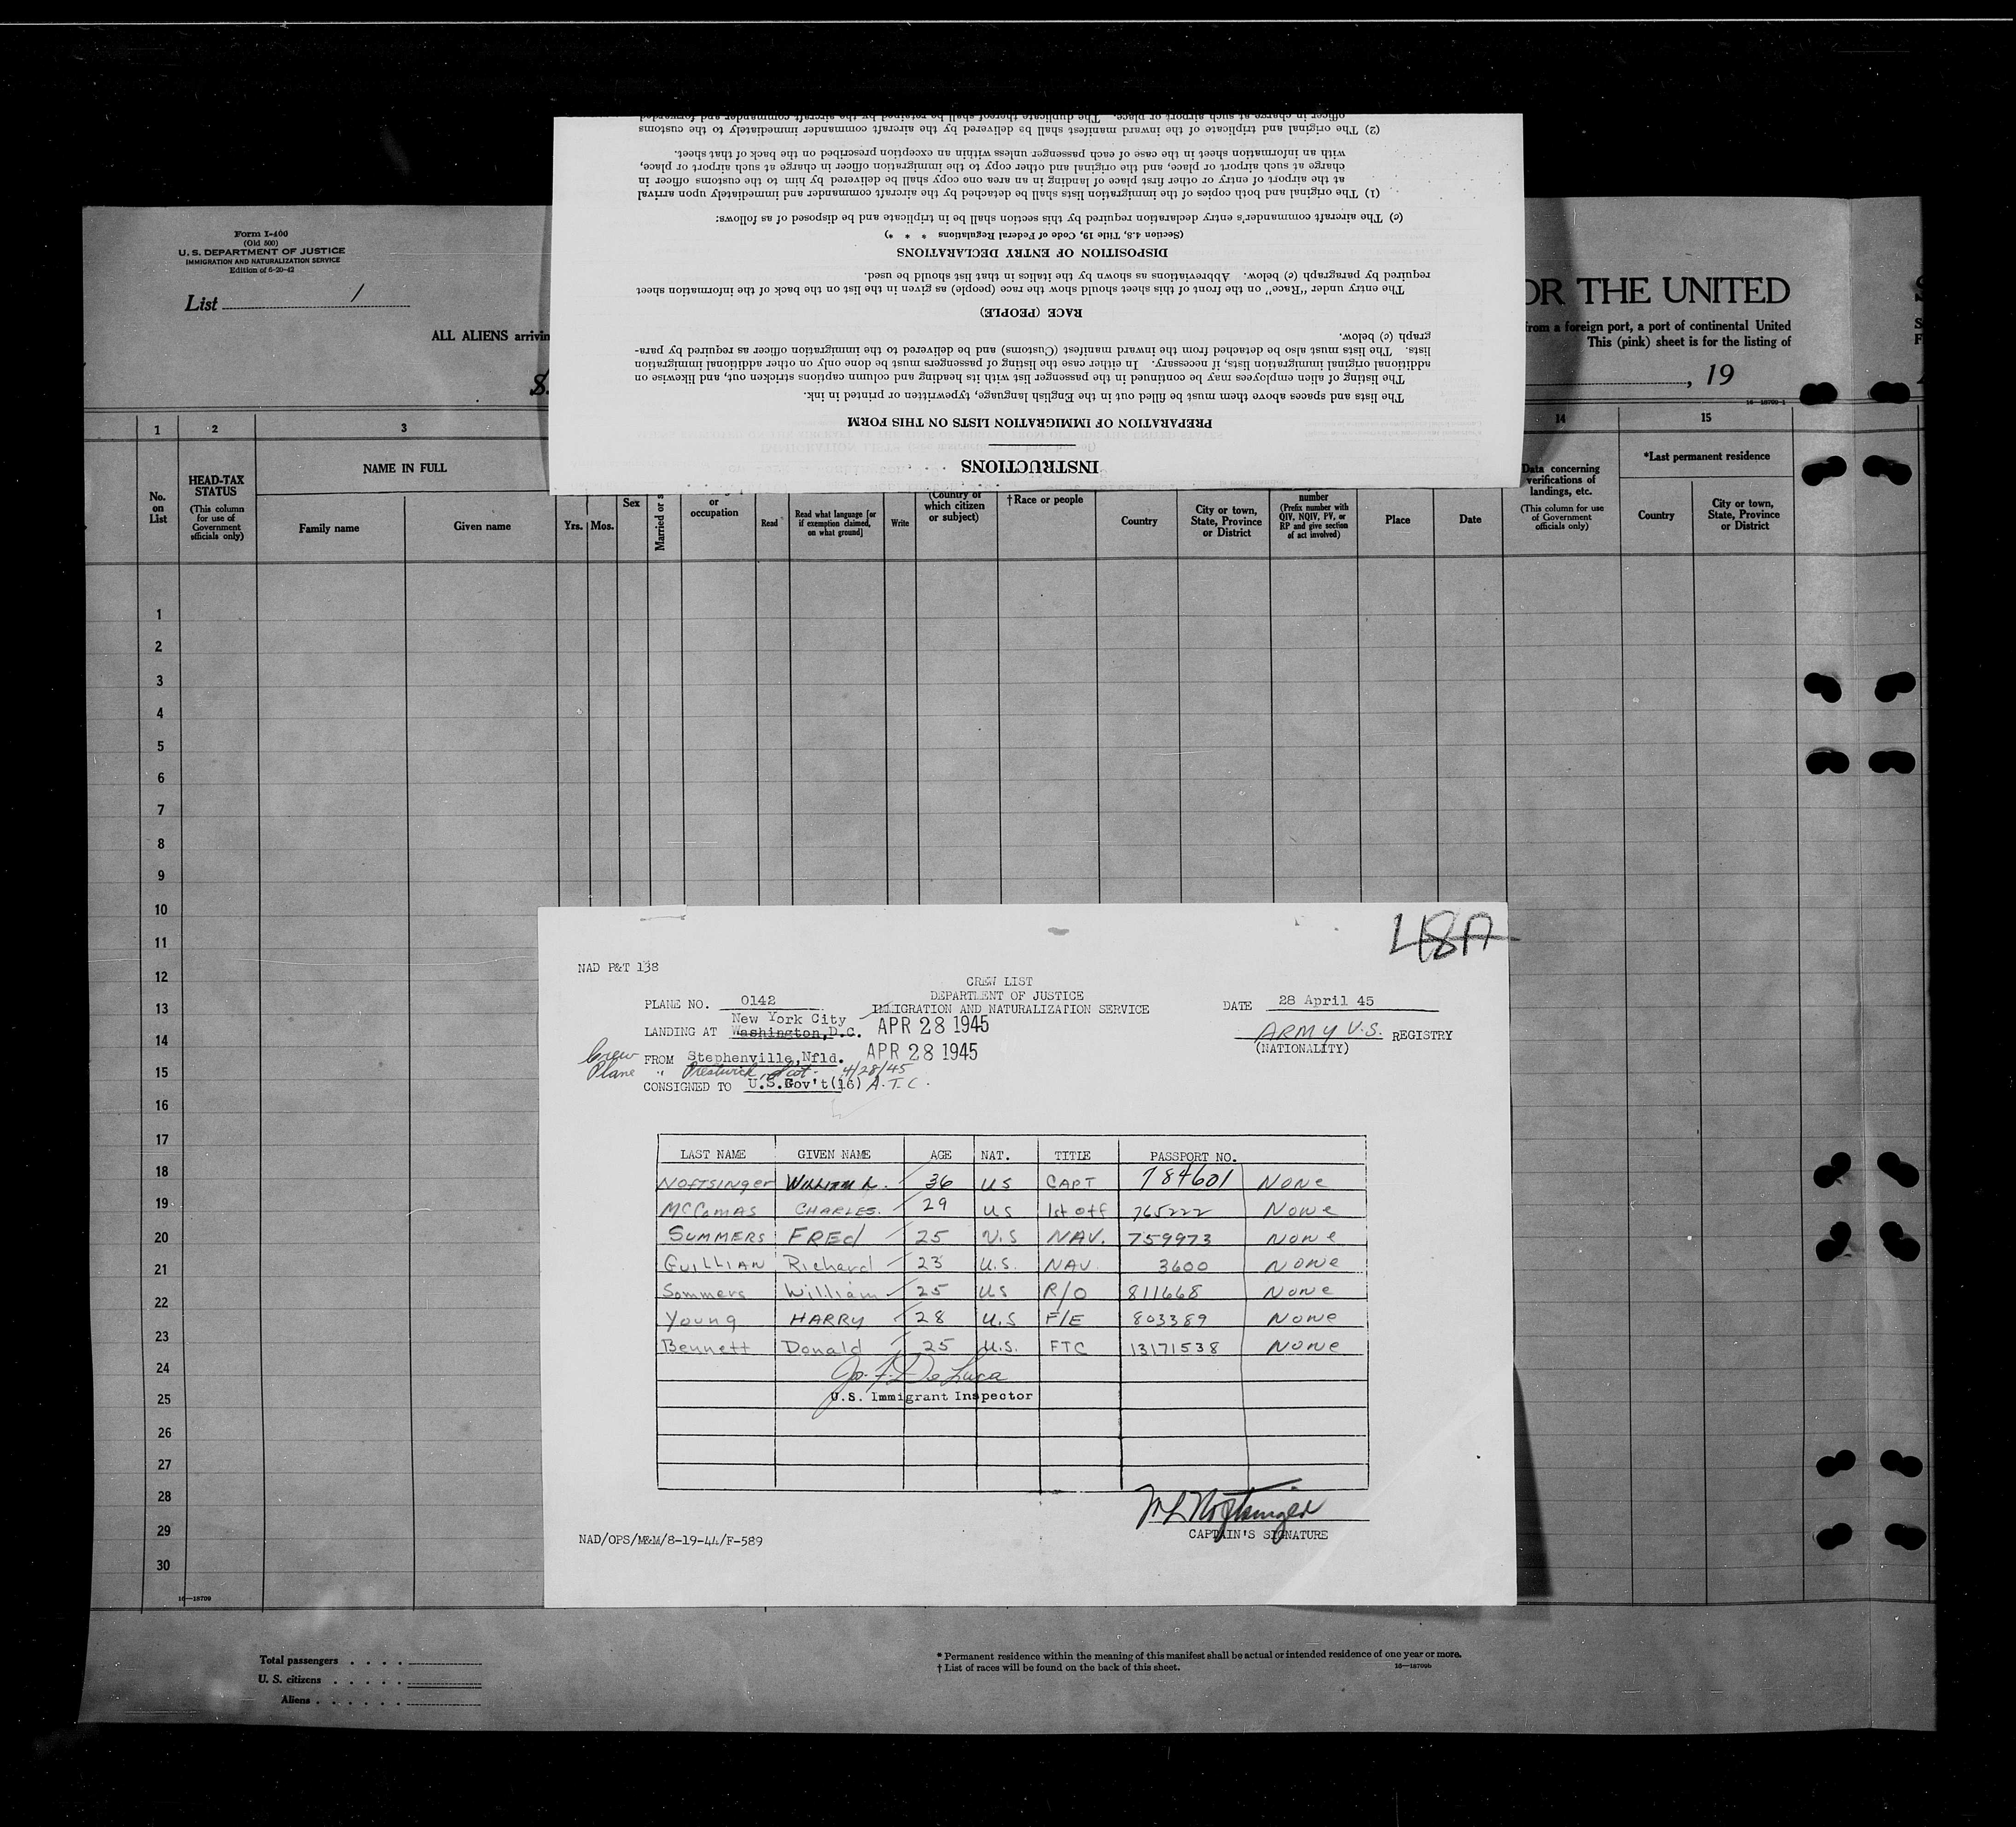 officer in charge at such airport or place. The duplicate thereof shall be retained by the aircraft commander and forwarded
(2) The original and triplicate of the inward manifest shall be delivered by the aircraft commander immediately to the customs
with an information sheet in the case of each passenger unless within an exception prescribed on the back of that sheet.
charge at such airport or place, and the original and other copy to the immigration officer in charge at such airport or place,
at the airport of entry or other first place of landing in an area one copy shall be delivered by him to the customs officer in
(1) The original and both copies of the immigration lists shall be detached by the aircraft commander and immediately upon arrival
(c) The aircraft commander's entry declaration required by this section shall be in triplicate and be disposed of as follows:
(Section 4.8, Title 19, Code of Federal Regulations * * *)
DISPOSITION OF ENTRY DECLARATIONS
required by paragraph (c) below. Abbreviations as shown by the italics in that list should be used.
The entry under "Race" on the front of this sheet should show the race (people) as given in the list on the back of the information sheet
RACE (PEOPLE)
graph (c) below.
lists. The lists must also be detached from the inward manifest (Customs) and be delivered to the immigration officer as required by para-
additional original immigration lists, if necessary. In either case the listing of passengers must be done only on other additional immigration
The listing of alien employees may be continued in the passenger list with its heading and column captions stricken out, and likewise on
The lists and spaces above them must be filled out in the English language, typewritten or printed in ink.
PREPARATION OF IMMIGRATION LISTS ON THIS FORM
INSTRUCTIONS
Form I-400
(Old 500)
U. S. DEPARTMENT OF JUSTICE
IMMIGRATION AND NATURALIZATION SERVICE
Edition of 6-20-42
List 1
ALL ALIENS arrivin
S.
OR THE UNITED
from a foreign port, a port of continental United
This (pink) sheet is for the listing of
, 19
16—18709-1
1 2 3 14 15
No. on List
HEAD-TAX STATUS
(This column for use of Government officials only)
NAME IN FULL
Family name Given name
Yrs. Mos.
Sex
Married or s
or occupation
Read
Read what language [or if exemption claimed, on what ground]
Write
(Country of which citizen or subject)
†Race or people
Country
City or town, State, Province or District
number
(Prefix number with QIV, NQIV, PV, or RP and give section of act involved)
Place
Date
Data concerning verifications of landings, etc.
(This column for use of Government officials only)
*Last permanent residence
Country
City or town, State, Province or District
1
2
3
4
5
6
7
8
9
10
11
12
13
14
15
16
17
18
19
20
21
22
23
24
25
26
27
28
29
30
16—18709
48A
NAD P&T 138
CREW LIST
DEPARTMENT OF JUSTICE
IMMIGRATION AND NATURALIZATION SERVICE
PLANE NO. 0142
DATE 28 April 45
New York City
LANDING AT Washington,D.C. APR 28 1945
ARMY U.S. REGISTRY
(NATIONALITY)
Crew FROM Stephenville,Nfld. APR 28 1945
Plane " Prestwick, Scot. 4/28/45
CONSIGNED TO U.S.Gov't(16) A.T.C.
LAST NAME GIVEN NAME AGE NAT. TITLE PASSPORT NO.
NOFTSINGER WILLIAM L. 36 US CAPT 784601 NONE
MCCOMAS CHARLES. 29 US 1st off 765222 NONE
SUMMERS FREd 25 U.S NAV. 759973 NONE
GUILLIAN Richard 23 U.S. NAV. 3600 NONE
Sommers William 25 US R/O 811668 NONE
Young HARRY 28 U.S F/E 803389 NONE
Bennett Donald 25 U.S. FTC 13171538 NONE
Jo. F. De Luca
U.S. Immigrant Inspector
W L Noftsinger
CAPTAIN'S SIGNATURE
NAD/OPS/M&M/8-19-44/F-589
Total passengers . . . .
U. S. citizens . . . . .
Aliens . . . . . .
* Permanent residence within the meaning of this manifest shall be actual or intended residence of one year or more.
† List of races will be found on the back of this sheet.
16—18709b